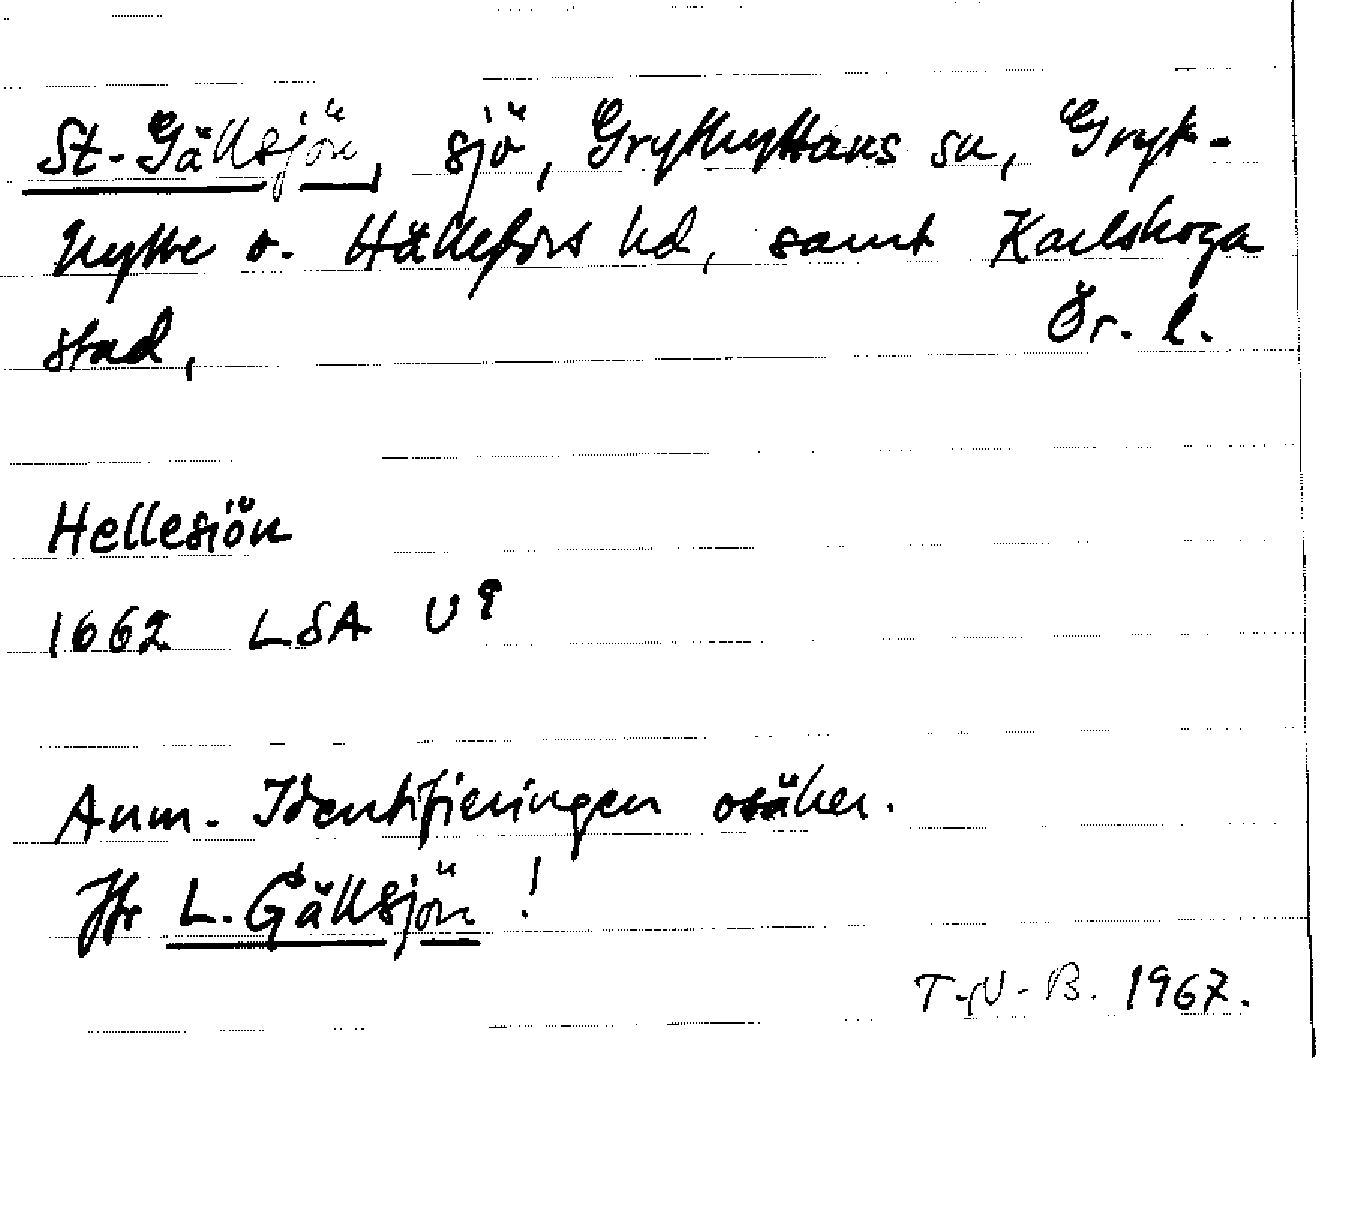 St. Gällsjön, sjö, Grythyttans sn, Gryt-
hytte o. Hällefors hd, samt Karlskoga
stad, Ör. l.
Hellesiön
1662 LSA U9
Anm. Identifieringen osäker.
Jfr L. Gällsjön !
T-U-B. 1967.